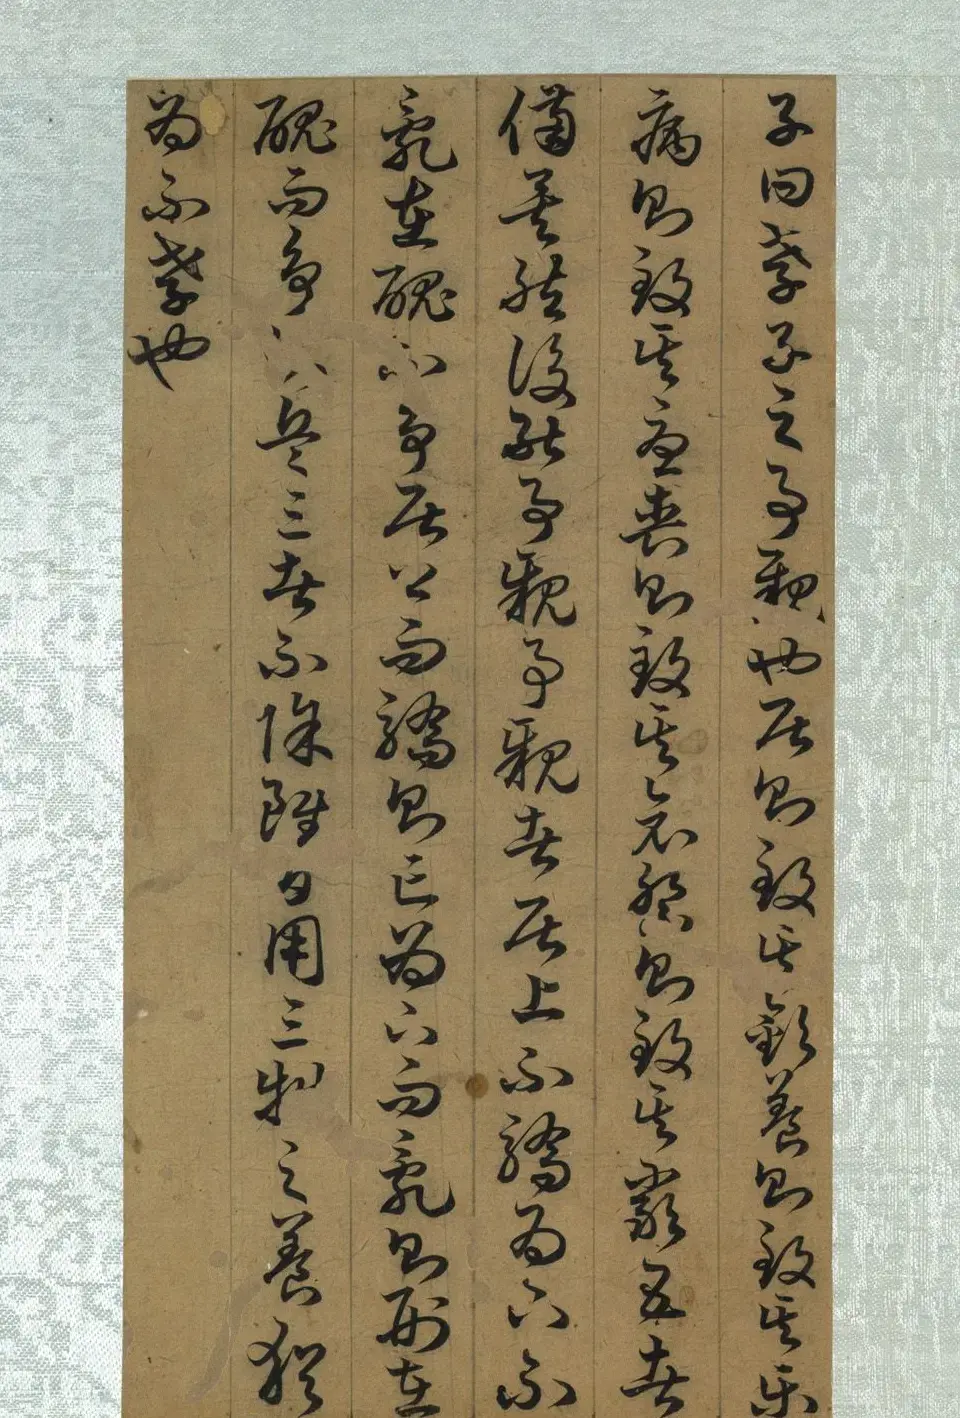 子曰孝子之事親也居則致其敬養則致其樂
病則致其憂喪則致其哀祭則致其嚴五者
備矣然後能事親事親者居上不驕為下不
亂在醜不爭居上而驕則亡為下而亂則刑在
醜而爭則兵三者不除雖日用三牲之養猶
為不孝也